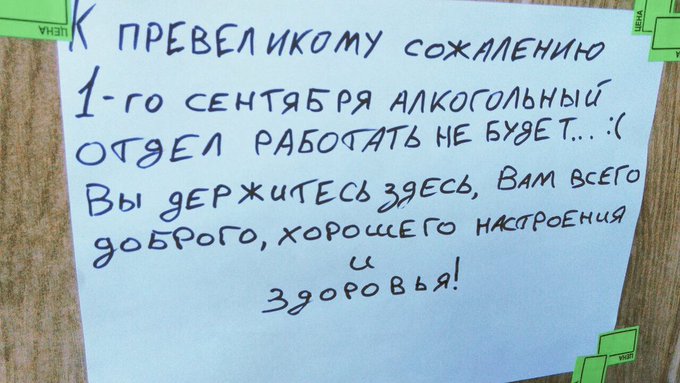 К ПРЕВЕЛИКОМУ СОЖАЛЕНИЮ
1-ГО СЕНТЯБРЯ АЛКОГОЛЬНЫЙ
ОТДЕЛ РАБОТАТЬ НЕ БУДЕТ... :(
ВЫ ДЕРЖИТЕСЬ ЗДЕСЬ, ВАМ ВСЕГО
ДОБРОГО, ХОРОШЕГО НАСТРОЕНИЯ
И
ЗДОРОВЬЯ!
ЦЕНА
ЦЕНА
ЦЕНА
ЦЕНА